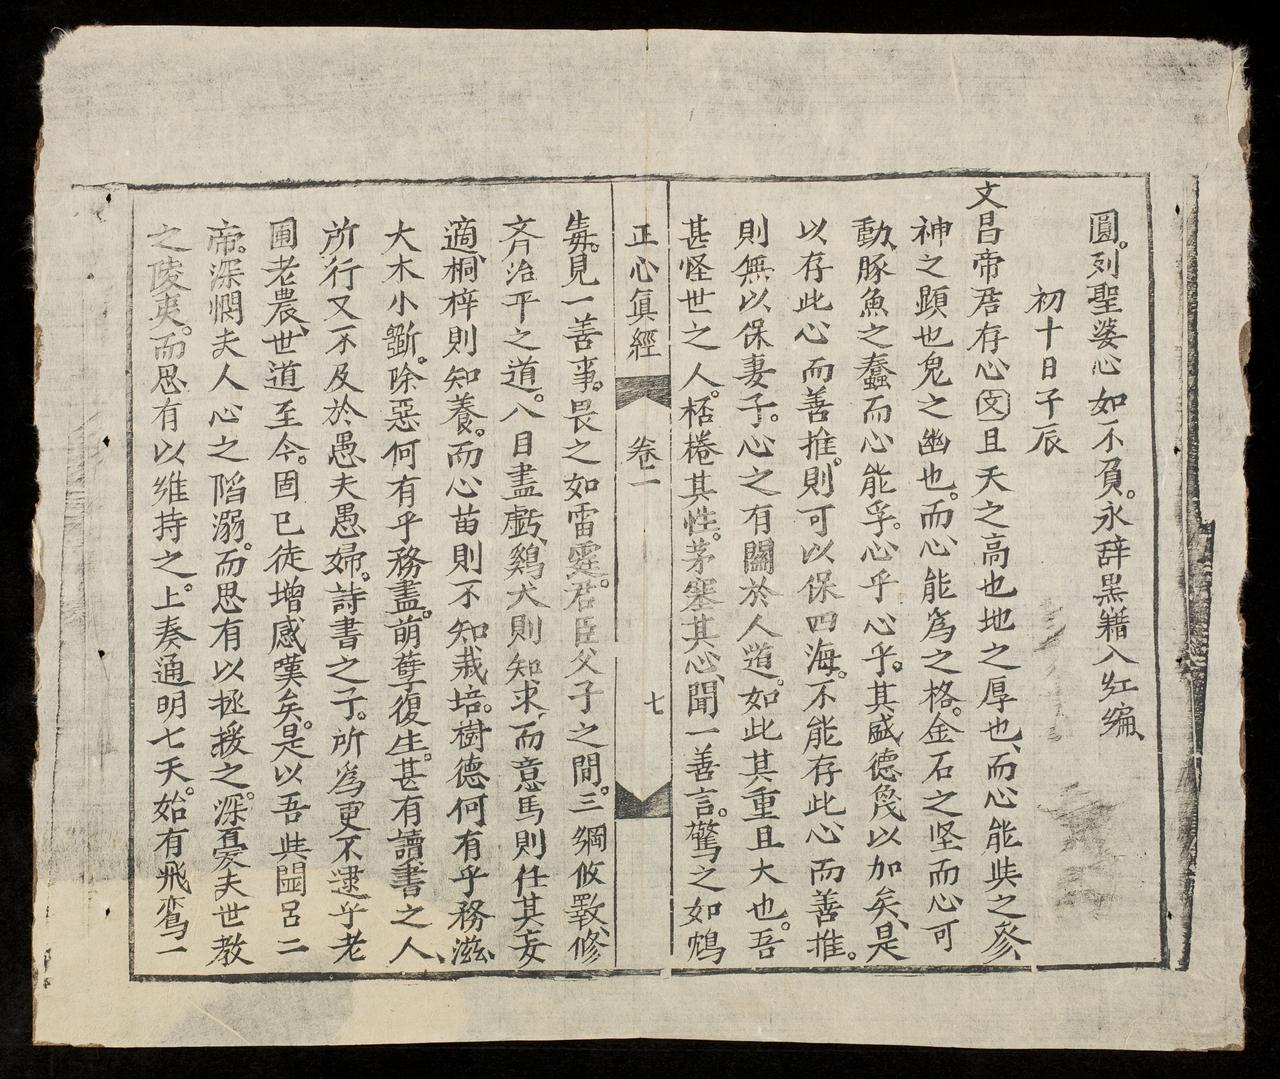 圓。列聖婆心如不負。永辞黒籍入紅編、
初十日子辰
文昌帝君存心文且天之高也地之厚也、而心能與之參
神之顕也鬼之幽也。而心能為之格。金石之堅而心可
動、豚魚之蠢而心能孚。心乎心乎。其盛德蔑以加矣、是
以存此心而善推。則可以保四海。不能存此心而善推。
則無以保妻子。心之有關於人道。如此其重且大也。吾
甚怪世之人。桮棬其性。茅塞其心、聞一善言。驚之如鴆
正心眞經 卷二 七
毒。見一善事。畏之如雷霆。君臣父子之間。三綱攸斁、修
齊治平之道。八目盡虧、鷄犬則知求、而意馬則任其妄
適、桐梓則知養。而心苗則不知栽培。樹德何有乎務滋、
大木小斲。除惡何有乎務盡。萌蘖復生。甚有讀書之人、
所行又不及於愚夫愚婦。詩書之子。所為更不逮乎老
圃老農、世道至今。固已徒增感嘆矣。是以吾與關呂二
帝。深憫夫人心之陷溺。而思有以拯援之。深憂夫世教
之陵夷。而思有以維持之。上奏通明七天。始有飛鸞二